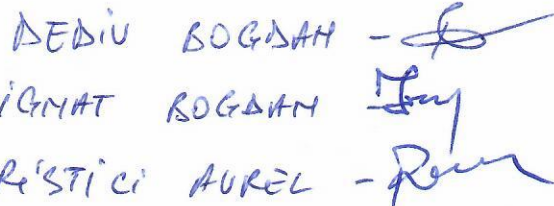 DEDIU BOGDAN -
IGNAT BOGDAN
RISTICI AUREL -